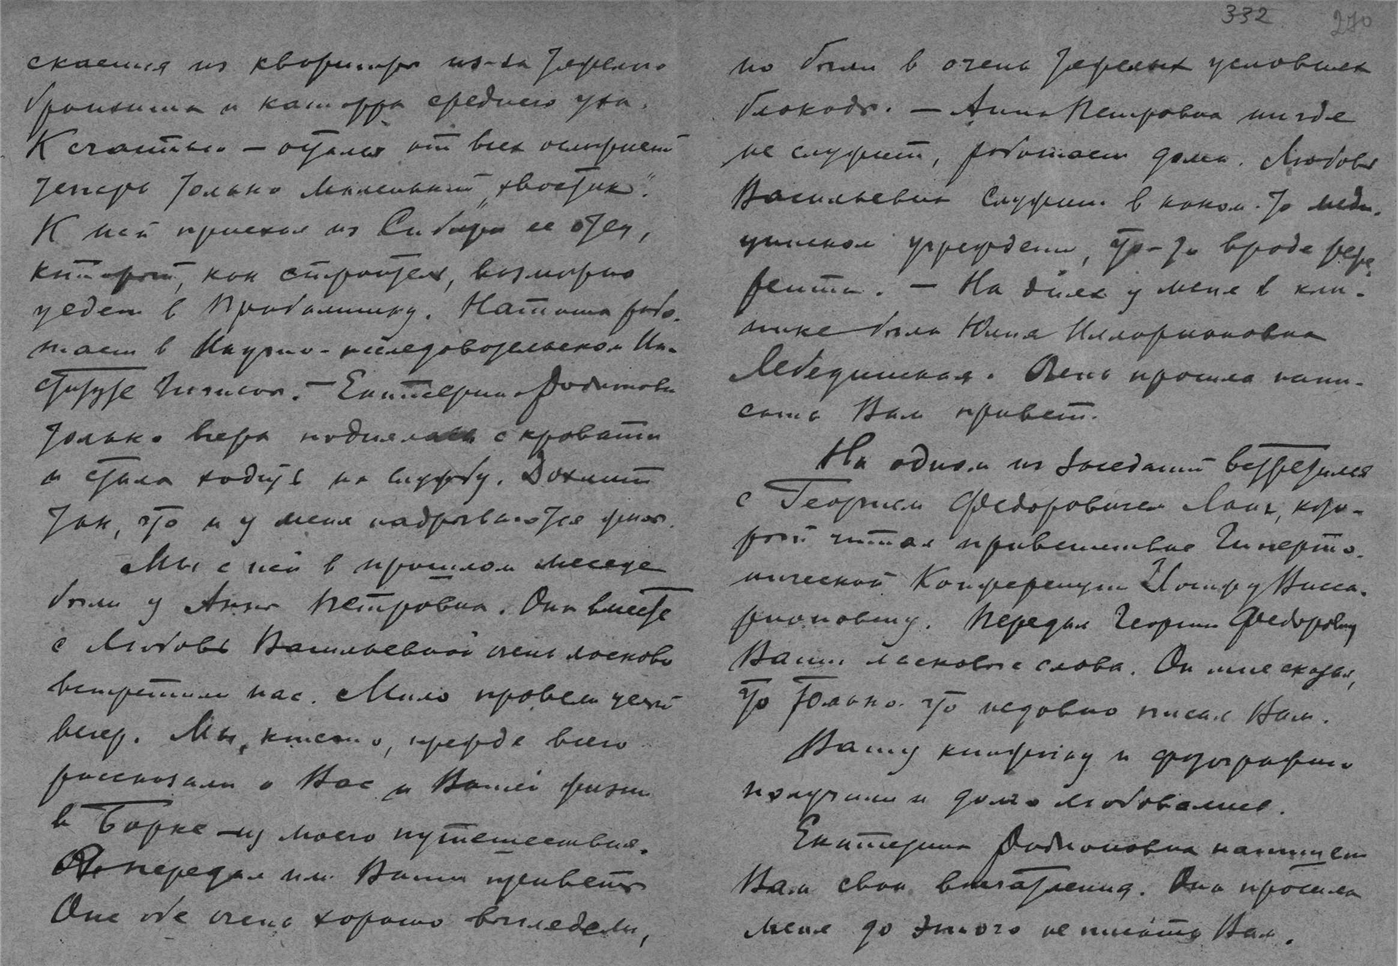 332
270
скается из квартиры из-за тяжелого
бронхита и катарра среднего уха.
К счастью — остался от всех неприят
теперь только маленький „хвостик".
К ней приехал из Сибири ее отец,
который, как строитель, возможно
уедет в Прибалтику. Наташа рабо-
тает в Научно-исследовательском Ин-
ституте Гигиены. — Екатерина Родионовна
только вчера поднялась с кровати
и стала ходить на службу. Кашляет
так, что и у меня надрывается
Мы с ней в прошлом месяце
были у Анны Петровны. Она вместе
с Любовь Васильевной очень ласково
встретили нас. Мило провели целый
вечер. Мы, конечно, прежде всего
рассказали о Вас и Вашей жизни
в Борке из моего путешествия.
Я передал им Ваши приветы
Они обе очень хорошо выглядели,
но были в очень тяжелых условиях
блокады. — Анна Петровна нигде
не служит, работает дома. Любовь
Васильевна служит в каком-то меди-
цинском учреждении, что-то вроде рефе-
рента. — На днях у меня в кли-
нике была Юлия Илларионовна
Лебединская. Очень просила напи-
сать Вам привет.
На одном из заседаний встретился
с Георгием Федоровичем Ланг, кото-
рый читал приветствие Гиперто-
нической Конференции Иосифу Висса-
рионовичу. Передал Георгию Федоровичу
Ваши ласковые слова. Он мне сказал,
что только что недавно писал Вам.
Вашу книжку и фотографию
получили и долго любовались.
Екатерина Родионовна напишет
Вам свои впечатления. Она просила
меня до этого не писать Вам.